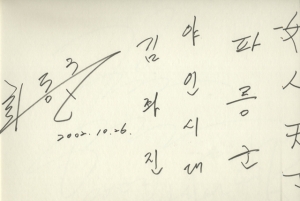 女人天下
파릉군
야인시대
김좌진
최동준
2002.10.26.